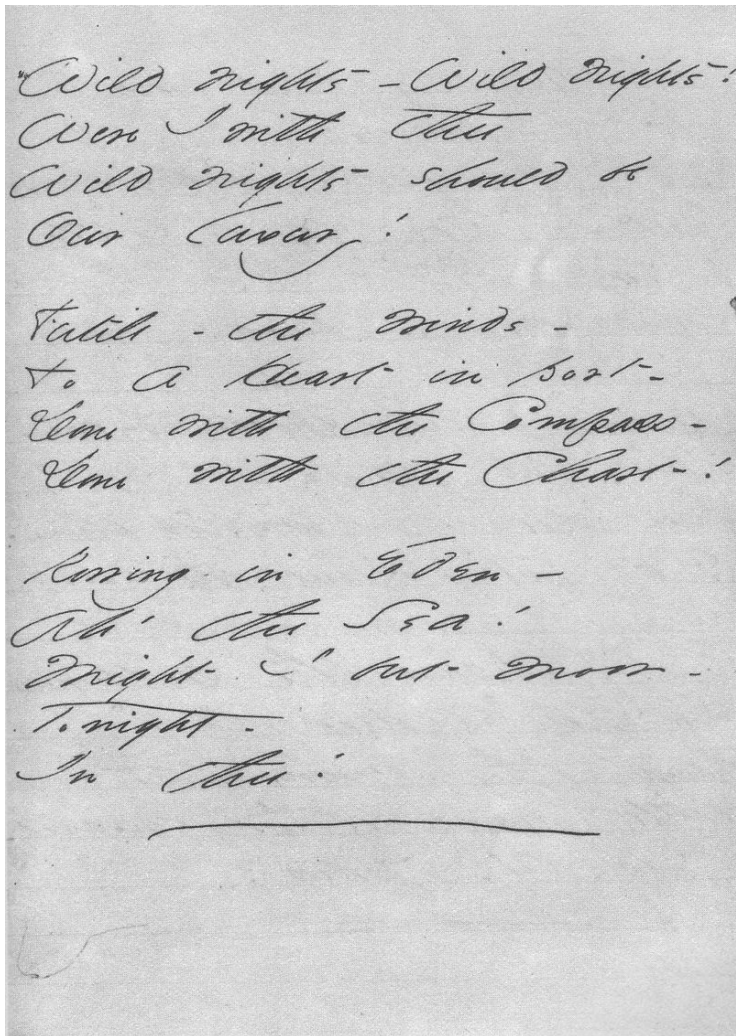 "Wild nights - Wild nights!
Were I with thee
Wild nights should be
Our luxury!
Futile - the winds -
To a Heart in port -
Done with the Compass -
Done with the Chart!
Rowing in Eden -
Ah! the Sea!
Might I but moor -
Tonight -
In thee!